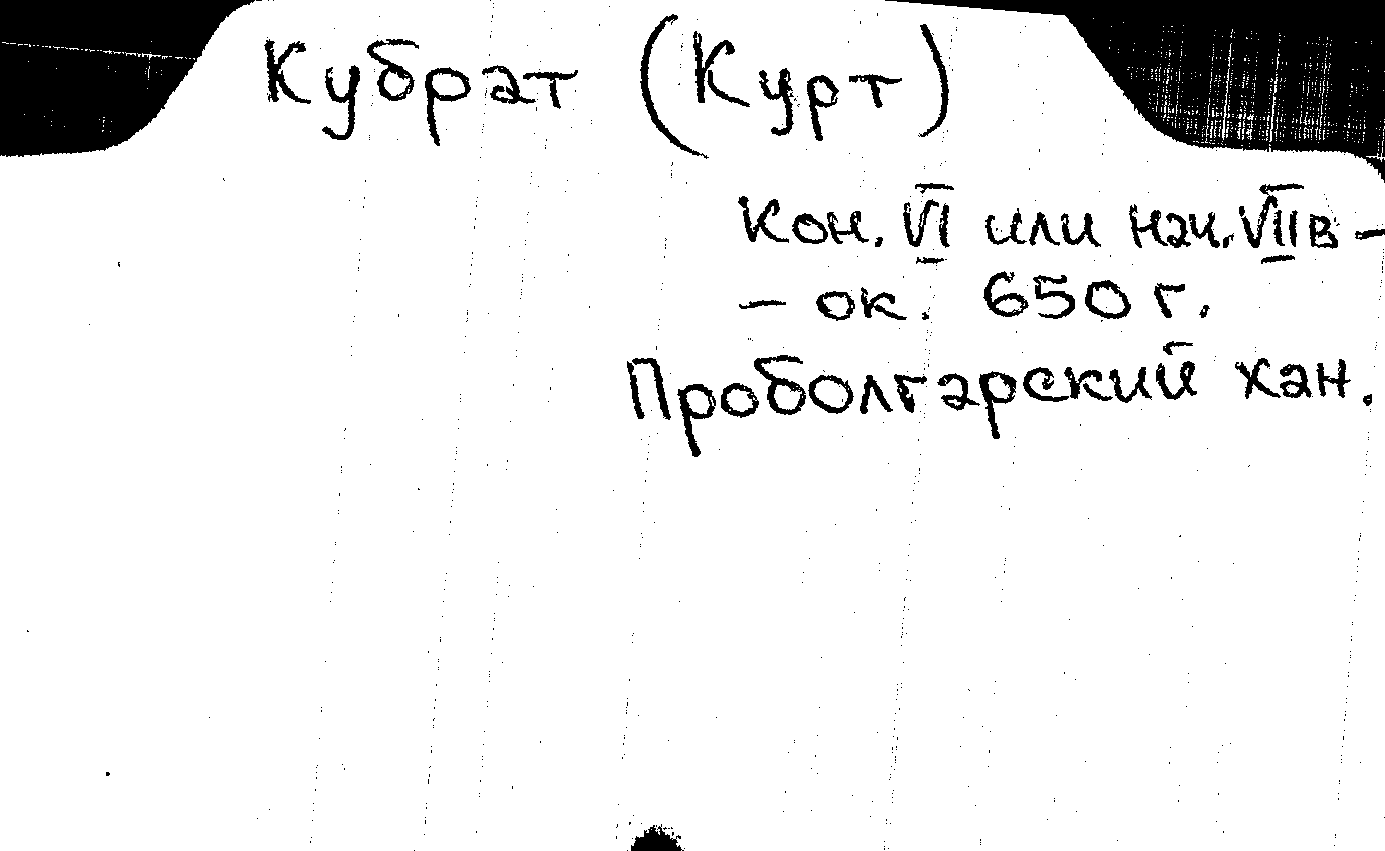 Кубрат (Курт)
Кон. VI или нач. VII в -
- ок. 650 г.
Проболгарский хан.